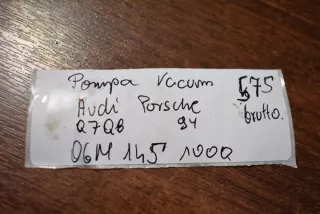 Pompa Vacum 575
Audi Porsche brutto.
Q7Q8 94
06M 145 100Q